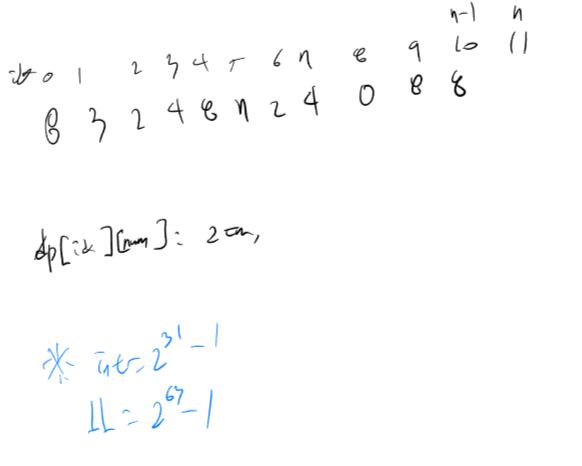 n-1 n
idx 0 1 2 3 4 5 6 7 8 9 10 11
8 3 2 4 8 7 2 4 0 8 8
dp[idx][num]:
* int = 2^31 - 1
ll = 2^63 - 1